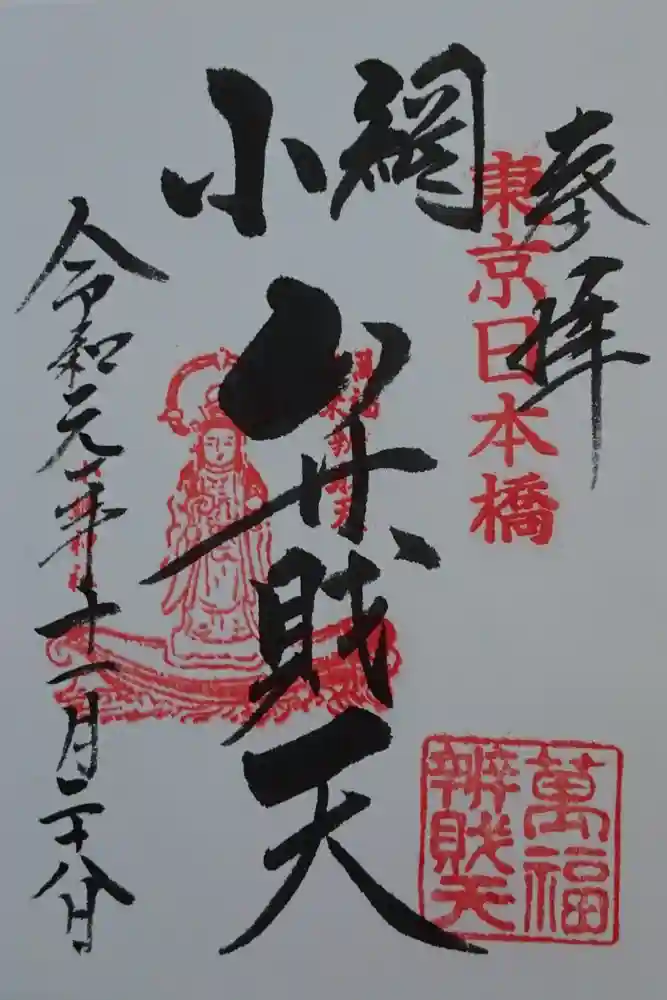 奉拝
東京日本橋
小網
弁財天
萬福
辨財天
令和元年十一月二十八日